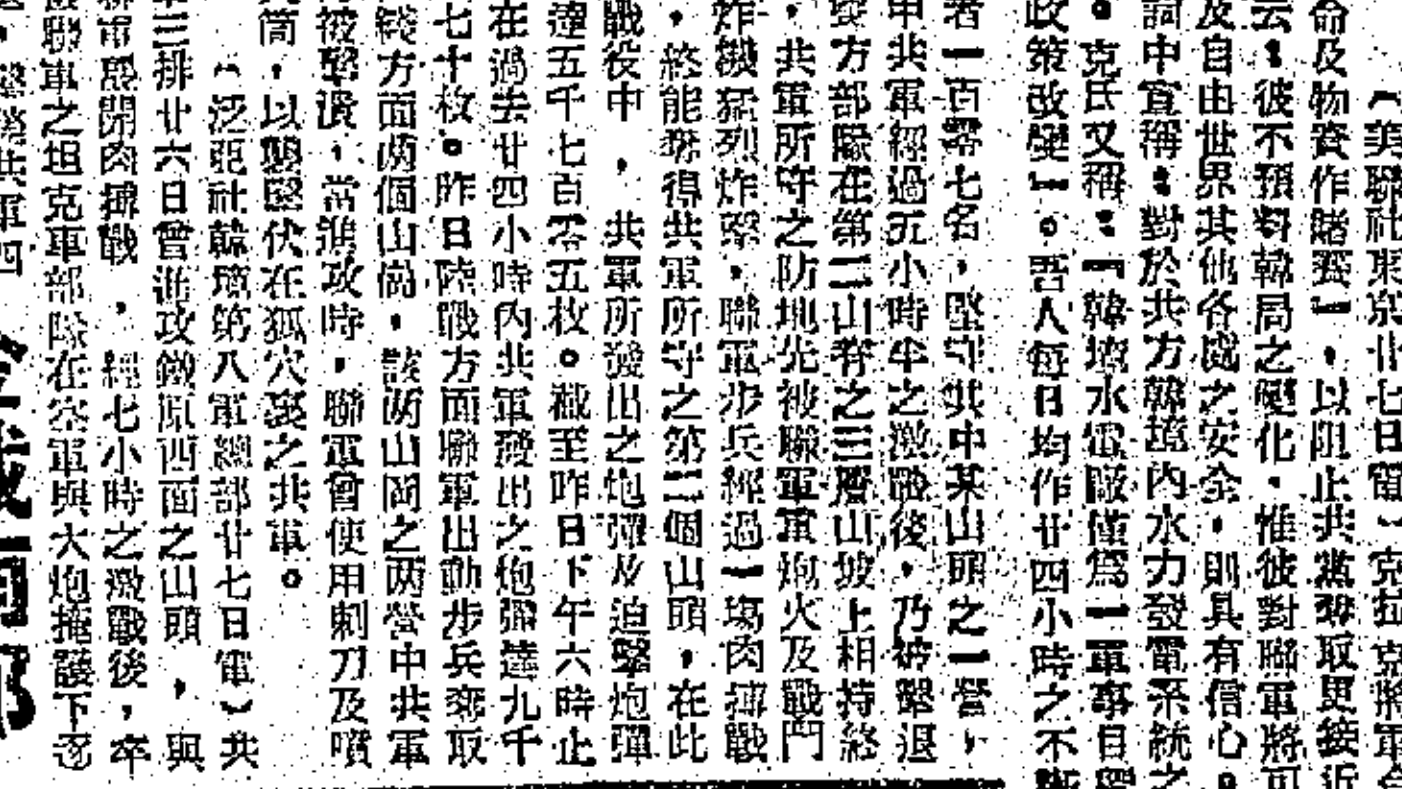 （美聯社東京廿七日電）克拉克將軍
命及物資作賭賽」，以阻止共黨奪取更接近
云：彼不預料韓局之變化，惟彼對聯軍將可
及自由世界其他各處之安全，則具有信心。
詞中宣稱：對於共方韓境內水力發電系統之
。克氏又稱：『韓境水電廠僅爲一軍事目標
政策改變」。吾人每日均作廿四小時之不斷
者一百零七名，堅守其中某山頭之一營，
中共軍經過五小時半之激戰後，乃被擊退
方部隊在第二山脊之三層山坡上相持終
，共軍所守之防地先被聯軍重炮火及戰鬥
炸機猛烈炸擊，聯軍步兵經過一場肉搏戰
，終能奪得共軍所守之第二個山頭，在此
戰役中，共軍所發出之炮彈及迫擊炮彈
達五千七百零五枚。截至昨日下午六時止
在過去廿四小時內共軍發出之炮彈達九千
七十枚。昨日陸戰方面聯軍出動步兵奪取
綫方面兩個山崗，該兩山崗之两營中共軍
被擊潰，當進攻時，聯軍曾使用刺刀及噴
筒，以襲擊伏在狐穴裏之共軍。
（泛亞社韓境第八軍總部廿七日電）共
三排廿六日曾進攻鐵原西面之山頭，與
聯軍展開肉搏戰，經七小時之激戰後，卒
聯軍之坦克車部隊在空軍與大炮掩護下逐
，擊斃共軍四